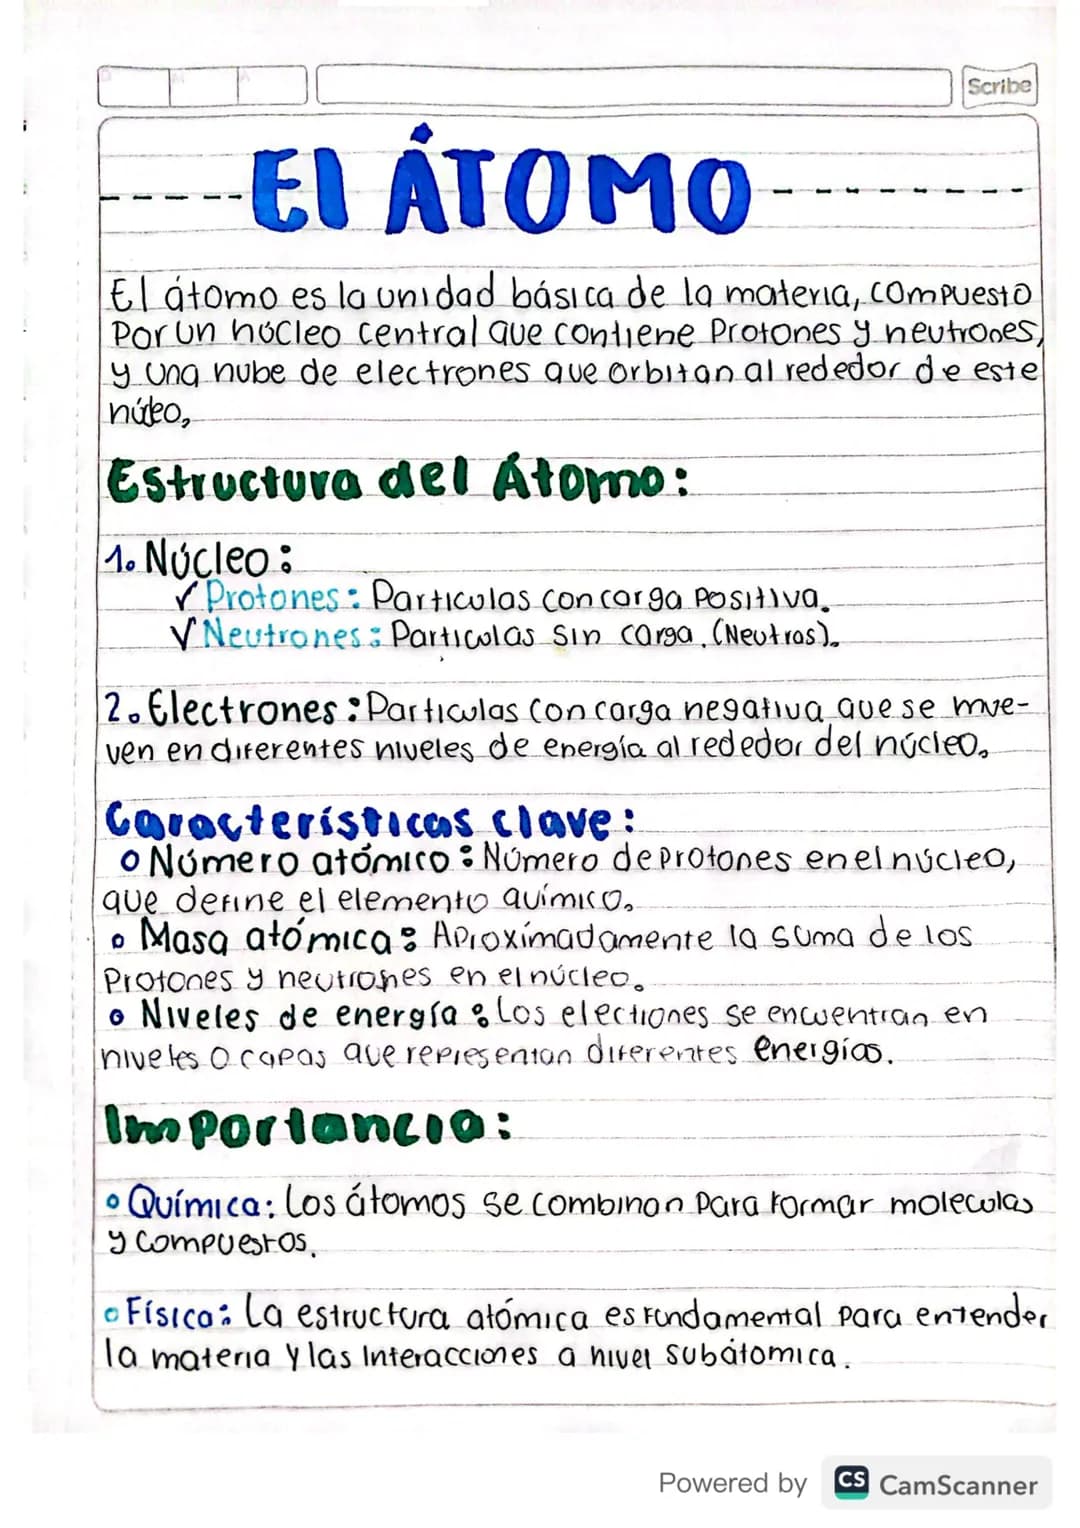 Scribe
El ÁTOMO
El átomo es la unidad básica de la materia, compuesto
Por un núcleo central que contiene Protones y neutrones,
y una nube de electrones que orbitan al rededor de este
núleo,
Estructura del Átomo:
1. Núcleo:
✓ Protones: Particulas con carga Positiva.
✓ Neutrones: Particulas sin carga. (Neutras).
2. Electrones: Particulas con carga negativa que se mue-
ven en diferentes niveles de energía al rededor del núcleo.
Características clave:
o Número atómico: Número de protones en el núcleo,
que define el elemento químico.
o Masa atómica: Aproxímadamente la suma de los
Protones y neutrones en el núcleo.
o Niveles de energía: Los electrones se encuentran en
niveles o capas que representan diferentes energías.
Importancia:
o Química: Los átomos se combinan Para formar moleculas
y Compuestos.
o Física: La estructura atómica es fundamental Para entender
la materia y las Interacciones a nivel subátomica.
Powered by CS CamScanner